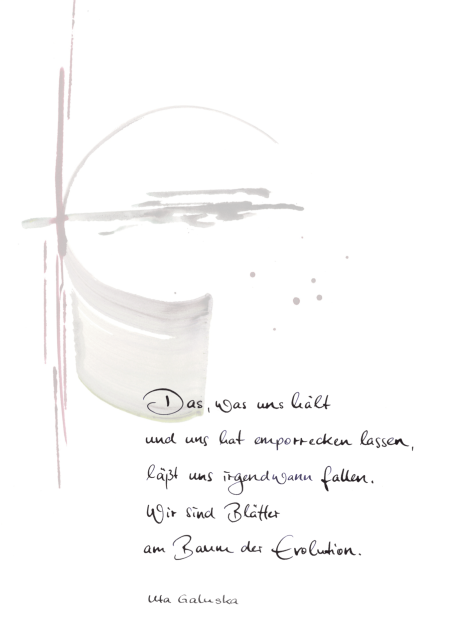 Das, was uns hält
und uns hat emporrecken lassen,
läßt uns irgendwann fallen.
Wir sind Blätter
am Baum der Evolution.
Uta Galuska